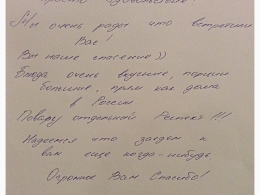 Мы очень рады что встретили
Вас!
Вы наше спасение))
Блюда очень вкусные, порции
большие, прям как дома
в России
Повару отдельный Респект!!!
Надеемся что заедем к
вам еще когда-нибудь
Огромное Вам Спасибо!